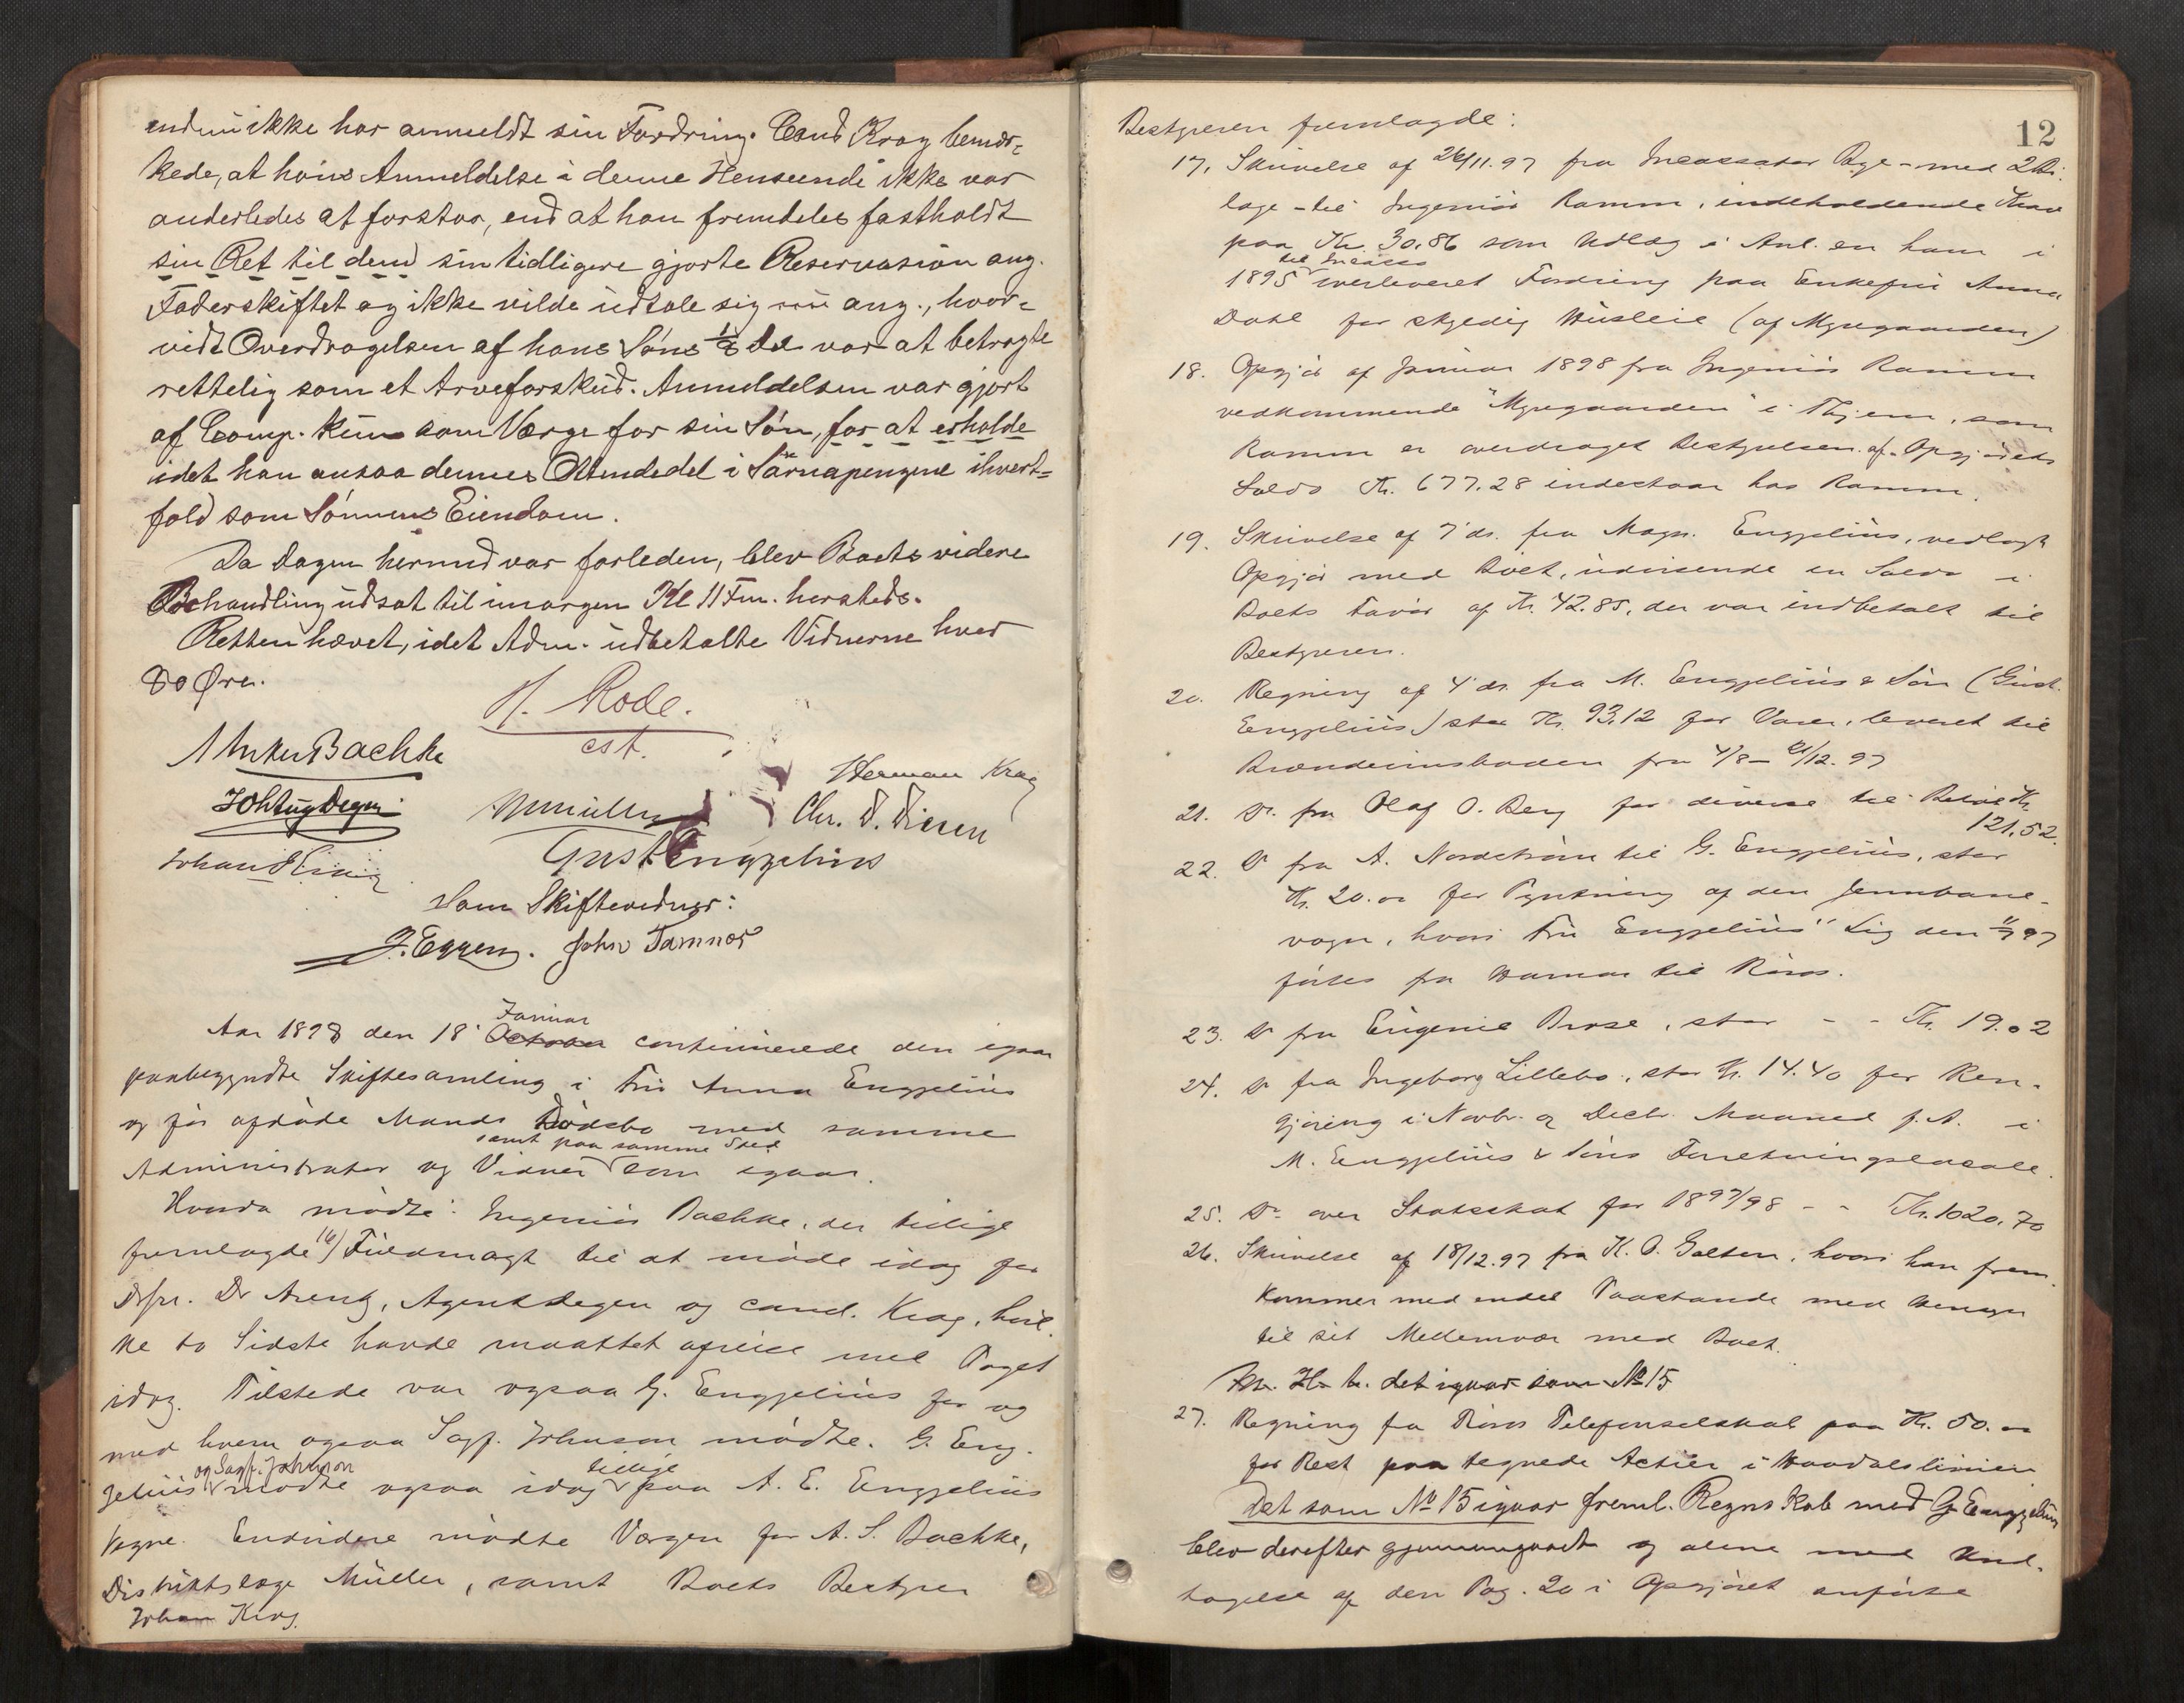 endnu ikke har anmeldt sin Fordring. Cand Krag bemær-
kede, at hans Anmeldelse i denne Henseende ikke var
anderledes at forstaa, end at han fremdeles fastholdt
sin Ret til den sin tidligere gjorte Reservasion ang.
Faderskiftet og ikke vilde udtale sig nu ang., hvor-
vidt Overdragelsen af hans Søns 1/8 Del var at betragte
rettelig som et Arveforskud. Anmeldelsen var gjort
af Comp. kun som Værge for sin Søn, for at erholde
idet han ansaa dennes Ottendedel i Särnapengene ihvert-
fald som Sønnens Eiendom.
Da Dagen hermed var forleden, blev Boets videre
Behandling udsat til imorgen Kl 11 Fm. hersteds.
Retten hævet, idet Adm. udbetalte Vidnerne hver
80 Øre.
H. Rode.
cst.
Bachke
Herman Krag
Joh Lug Degen
Müller
Chr. D. Disen
Gust Engzelius
Som Skiftevidner:
J. Eggen. John Tamnes
Januar
Aar 1898 den 18' October continuerede den igaar
paabegyndte Skiftesamling i Fru Anna Engzelius
og før afdøde Mands Dødsbo med samme
samt paa samme Sted
Administrator og Vidner som igaar.
Hvorda mødte: Ingeniør Bachke, der tidlige
fremlagde 16) Fuldmagt til at møde idag for
Dr Arentz, Agent Degen og cand. Krag, hvil-
ke to Sidste havde maattet afreise med Toget
idag. Tilstede var ogsaa G. Engzelius for og
med hvem ogsaa Sagf. Johnson mødte. G. Eng-
og Sagf. Johnson
tillige
zelius mødte ogsaa idag paa A. E. Engzelius
Vegne. Endvidere mødte Værgen for A. S. Bachke,
Distriktslæge Müller, samt Boets Bestyrer
Johan Krog.
12
Bestyreren fremlagde:
17. Skrivelse af 26/11.97 fra Incassator Page - med 2 Bi-
lage - til Ingeniør Ramm, indeholdende Krav
paa Kr. 30.86 som Udlæg i Anl. en ham i
til Incasso
1895 overleveret Fordring paa Enkefru Anna
Dahl for skyldig Husleie (af Myregaarden)
18. Opgjør af Januar 1898 fra Ingeniør Ramm
vedkommende "Myregaarden" i Thjem, som
Ramm er overdraget Bestyrelsen af. Opgjørets
Saldo Kr. 677.28 indestaar hos Ramm.
19. Skrivelse af 7' ds. fra Magn. Engzelius, vedlagt
Opgjør med Boet, udvisende en Saldo i
Boets Favør af Kr. 42.85, der var indbetalt til
Bestyreren.
20. Regning af 4' ds. fra M. Engzelius & Søn (Gust.
Engzelius) stor Kr. 93.12 for Varer, leveret til
Brændevinsboden fra 4/8 - 21/12.97
21. Do. fra Olaf O. Berg for diverse til Beløb Kr.
121.52.
22. Do fra A. Nordstrøm til G. Engzelius, stor
Kr. 20.00 for Pyntning af den Jernbane-
vogn, hvori Fru Engzelius' Lig den 11/7 97
førtes fra Hamar til Røros.
23. Do fra Eugenie Brose, stor - - Kr. 19.02
24. Do fra Ingeborg Lillebo, stor Kr. 14.40 for Ren-
gjøring i Novbr. og Decbr. Maaned f. A. i
M. Engzelius & Søns Forretningslocale.
25. Do. over Statsskat for 1897/98 - - Kr. 1020.70
26. Skrivelse af 18/12.97 fra K. O. Galten, hvori han frem-
kommer med endel Paastande med Hensyn
til sit Mellemvær med Boet.
det igaar som No 15
27. Regning fra Røros Telefonselskab paa Kr. 50.00
for Rest paa tegnede Actier i Haadalslinien
Det som No 15 igaar freml. Regnskab med G Engzelius
blev derefter gjennemgaaet og alene med Und-
tagelse af den Pag. 20 i Opgjøret anførte